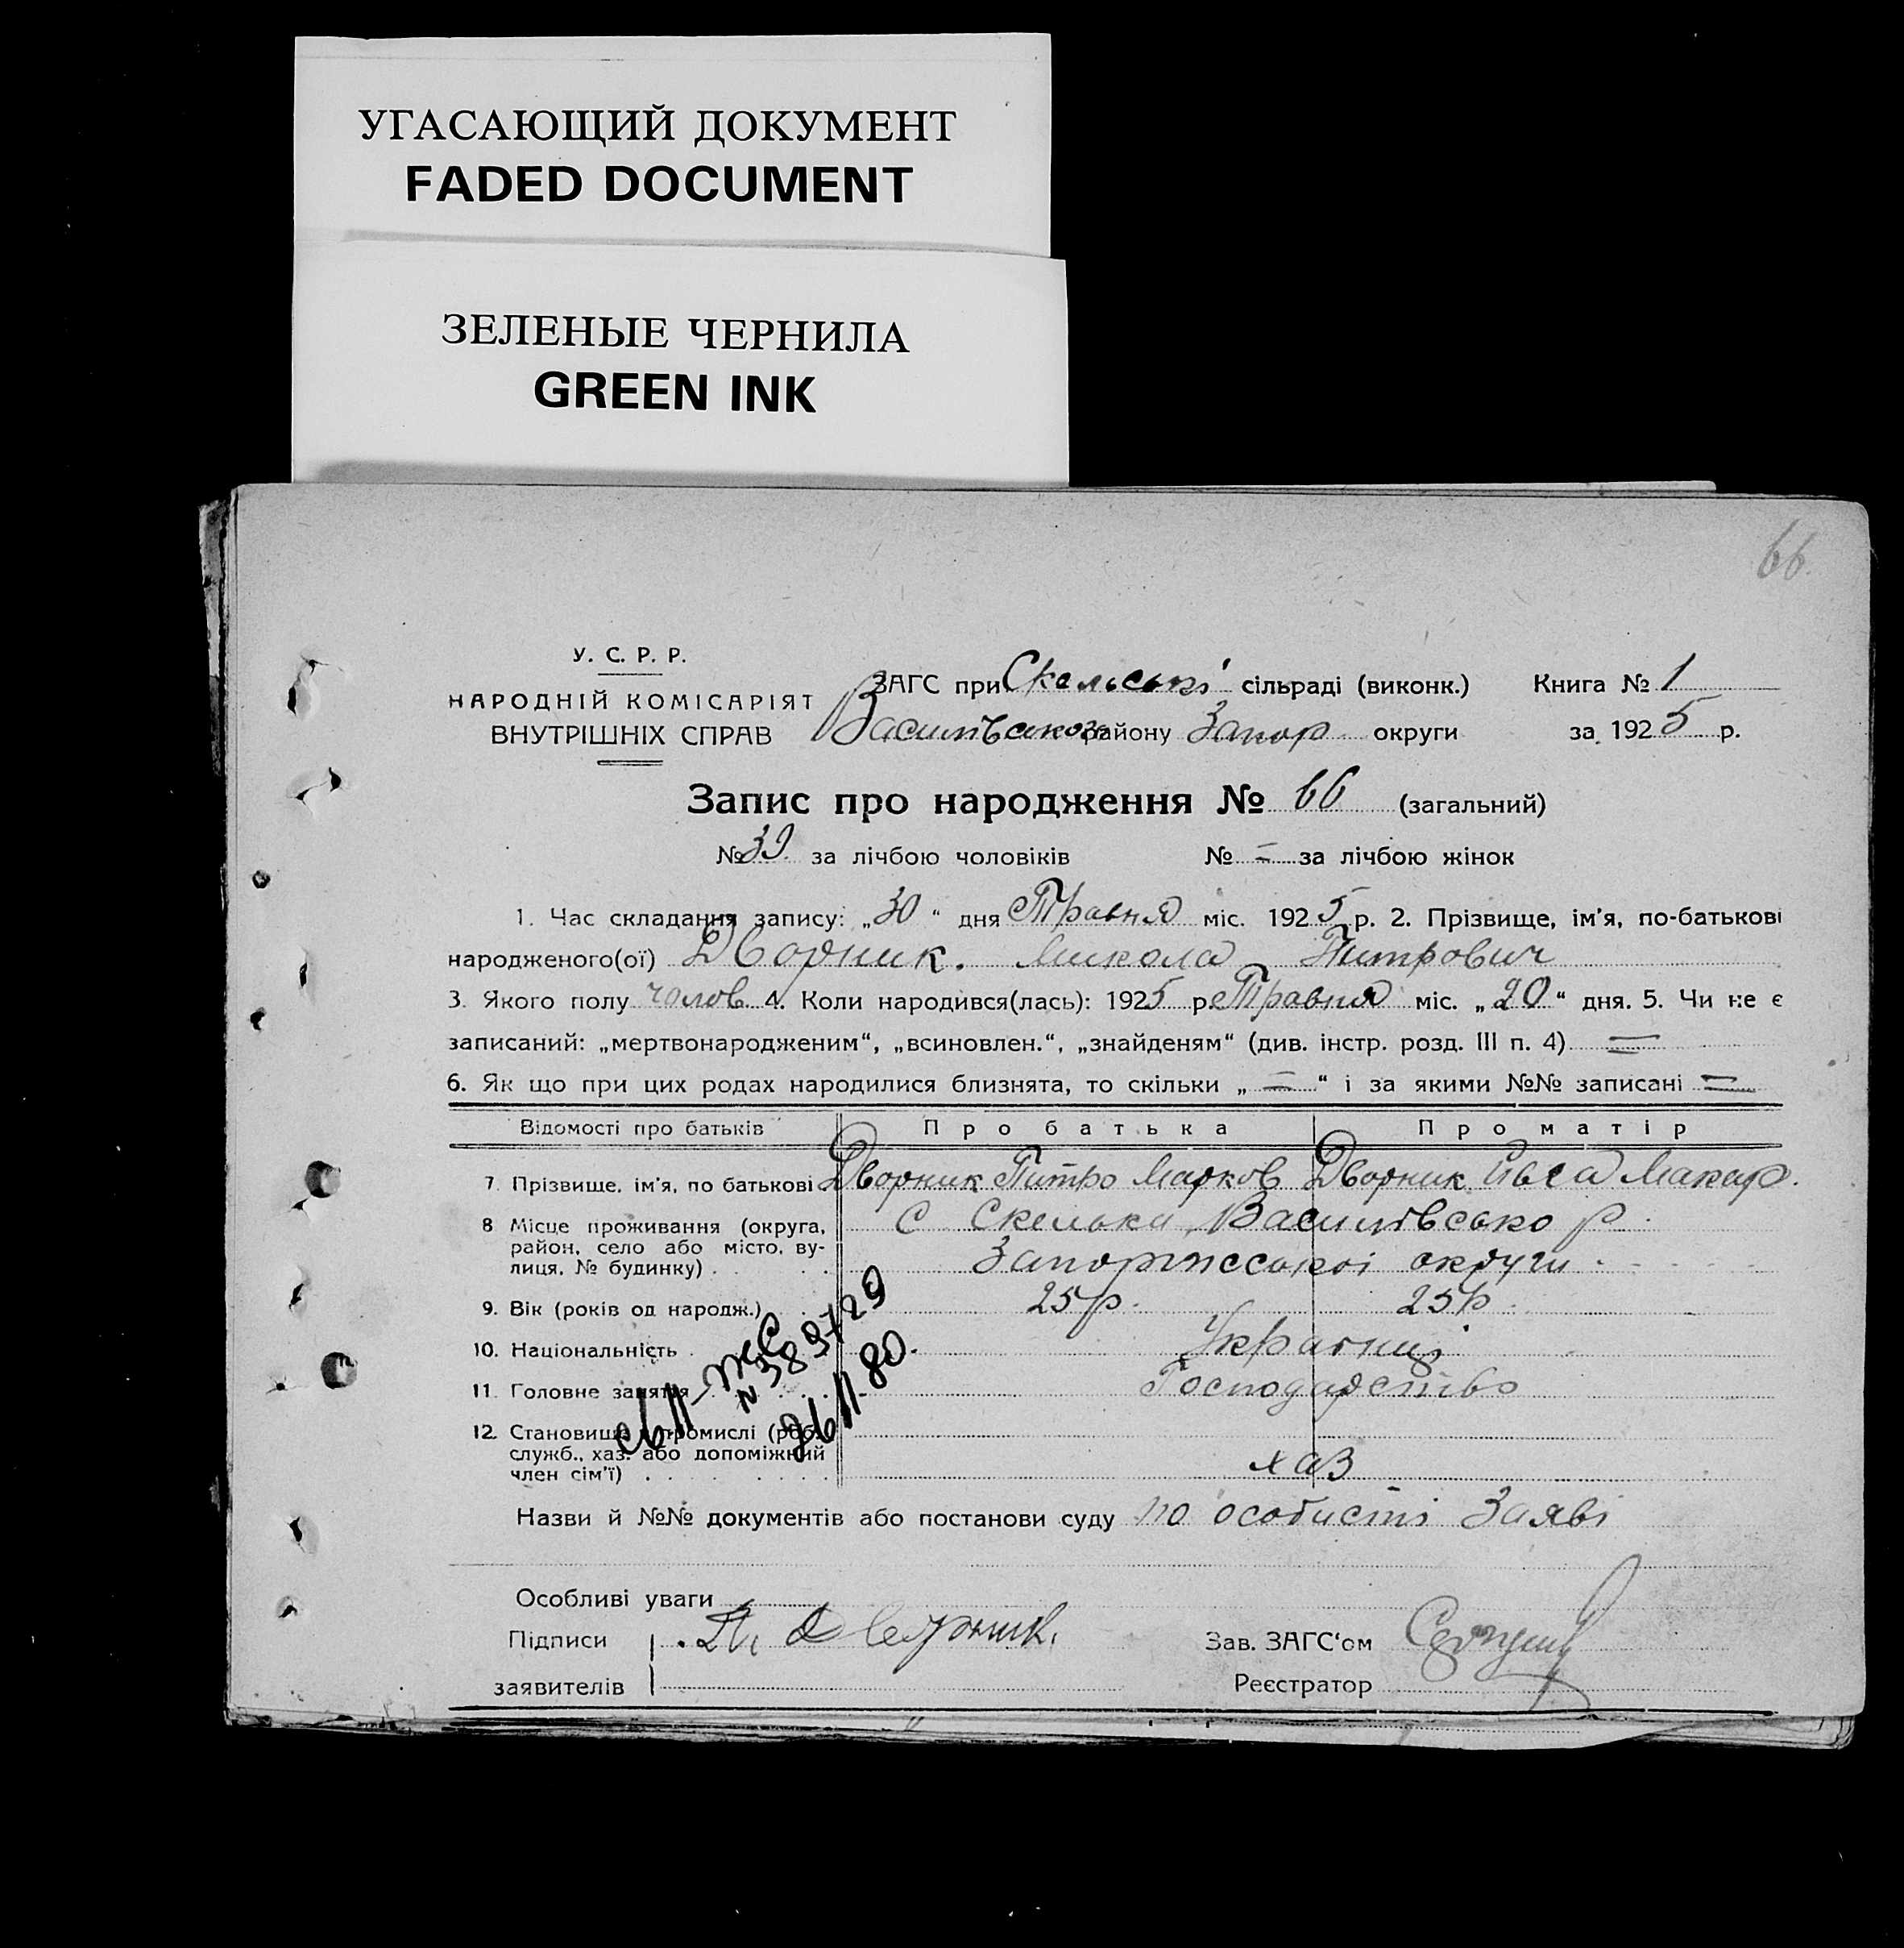 УГАСАЮЩИЙ ДОКУМЕНТ
FADED DOCUMENT
ЗЕЛЕНЫЕ ЧЕРНИЛА
GREEN INK
66.
У. С. Р. Р.
НАРОДНІЙ КОМІСАРІЯТ
ВНУТРІШНІХ СПРАВ
ЗАГС при Скельські сільраді (виконк.) Книга № 1
Василівського району Запор округи за 1925 р.
Запис про народження № 66 (загальний)
№ 39. за лічбою чоловіків № = за лічбою жінок
1. Час складання запису: „30“ дня Травня міс. 1925 р. 2. Прізвище, ім'я, по-батькові
народженого(ої) Дворник. Микола Питрович
3. Якого полу чолов. 4. Коли народився(лась): 1925 р. Травня міс. „20“ дня. 5. Чи не є
записаний: „мертвонародженим“, „всиновлен.“, „знайденям“ (див. інстр. розд. III п. 4) =
6. Як що при цих родах народилися близнята, то скільки „=“ і за якими №№ записані =
Відомості про батьків Про батька Про матір
7. Прізвище, ім'я, по батькові Дворник Питро Марков Дворник Макар.
8 Місце проживання (округа, район, село або місто, вулиця, № будинку) С Скелька Василівсько р.
Запоріжської округи
9. Вік (років од народж.) 25 р. 25 р.
10. Національність Українці
11. Головне заняття Господарство
12. Становище в промислі (роб.,
служб., хаз. або допоміжний
член сім'ї) хаз
св II-ЖС
N 389729
26/II-80.
Назви й №№ документів або постанови суду по особисті Заяві
Особливі уваги
Підписи П. Дворник. Зав. ЗАГС'ом
заявителів Реєстратор